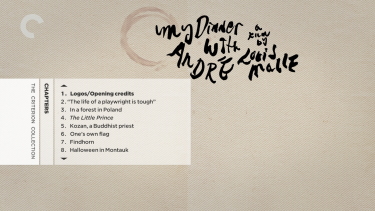 my Dinner
a
film
by
With
Louis
AnDRÉ
MallE
CHAPTERS
THE CRITERION COLLECTION
1. Logos/Opening credits
2. "The life of a playwright is tough"
3. In a forest in Poland
4. The Little Prince
5. Kozan, a Buddhist priest
6. One's own flag
7. Findhorn
8. Halloween in Montauk